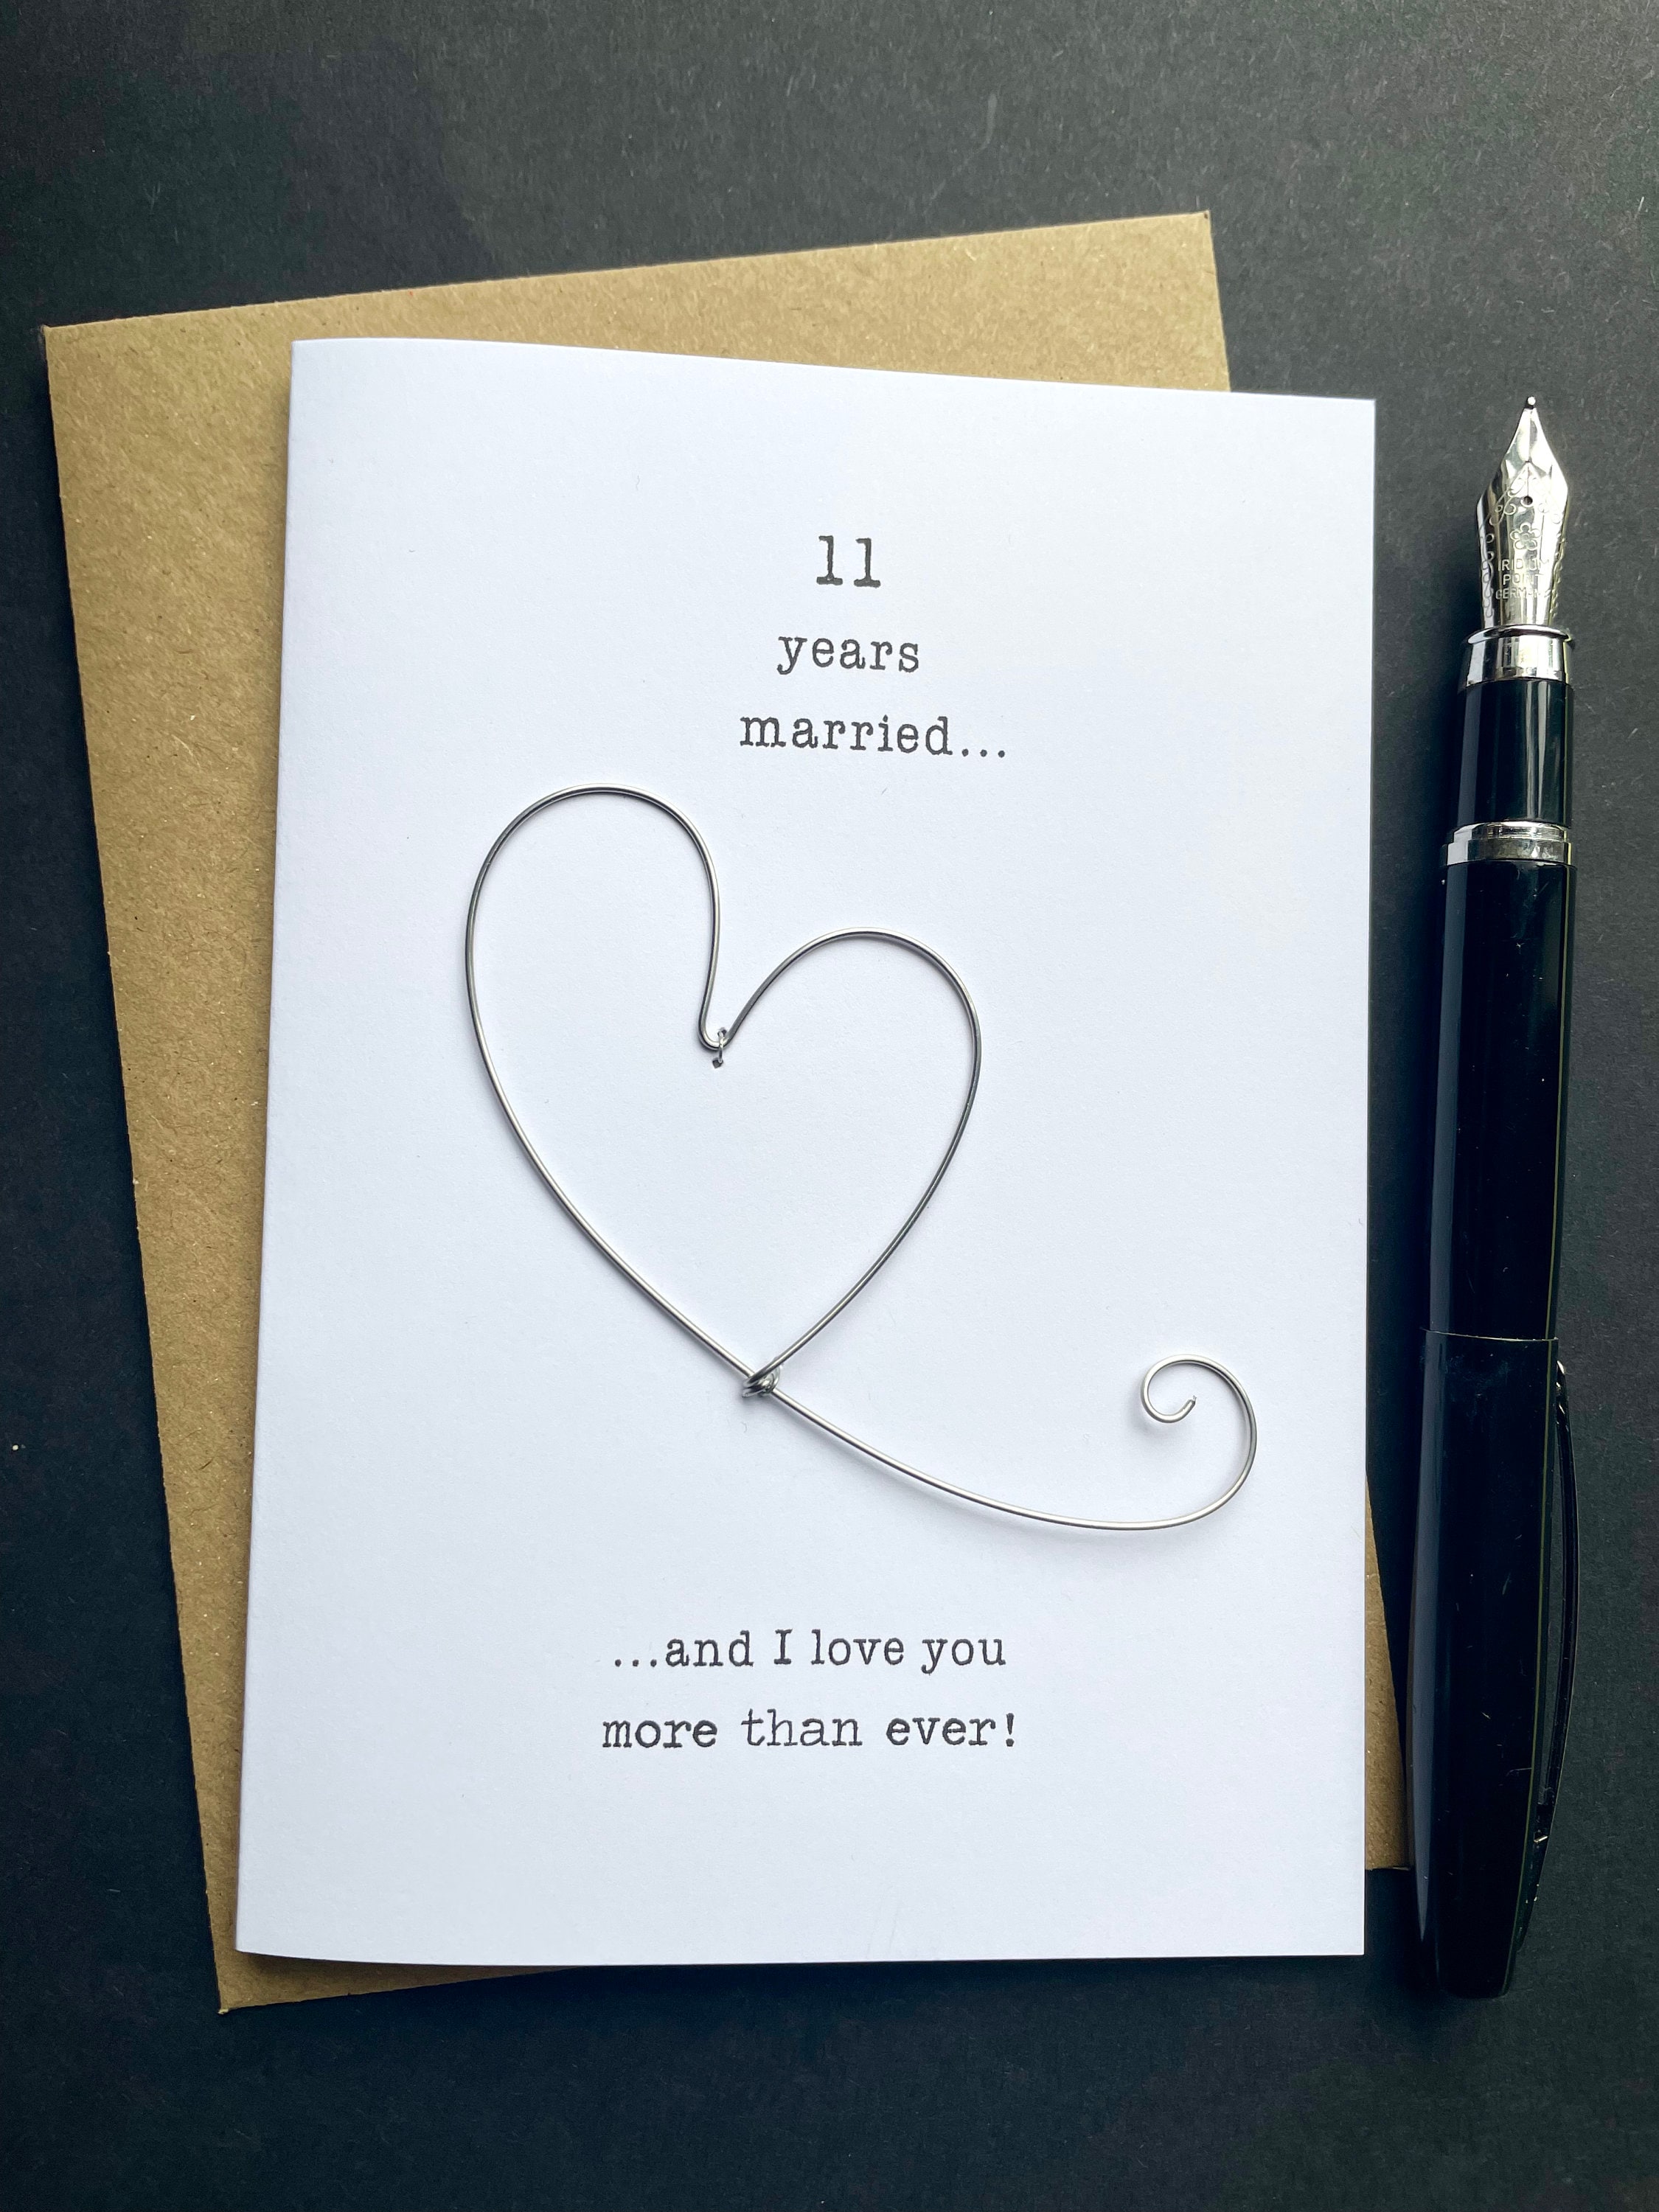 11
years
married...
...and I love you
more than ever!
IRIDIUM
POINT
GERMANY